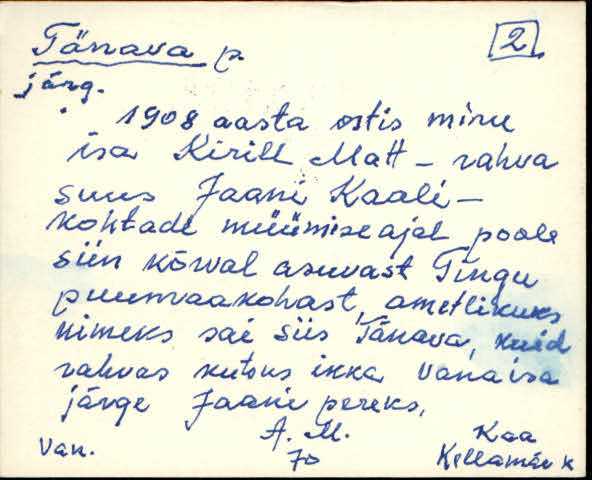 Tänava p [2]
järg.
1908 aasta ostis minu
isa Kirill Matt - rahva
suus Jaani Kaali -
kohtade müümise ajal poole
siin kõrval asuvast Tingu
puumaakohast, ametlikuks
nimeks sai siis Tänava, kuid
rahvas kutsus ikka vanaisa
järge Jaani pereks,
Van. A. M. Kaa
70 Kellamäe k